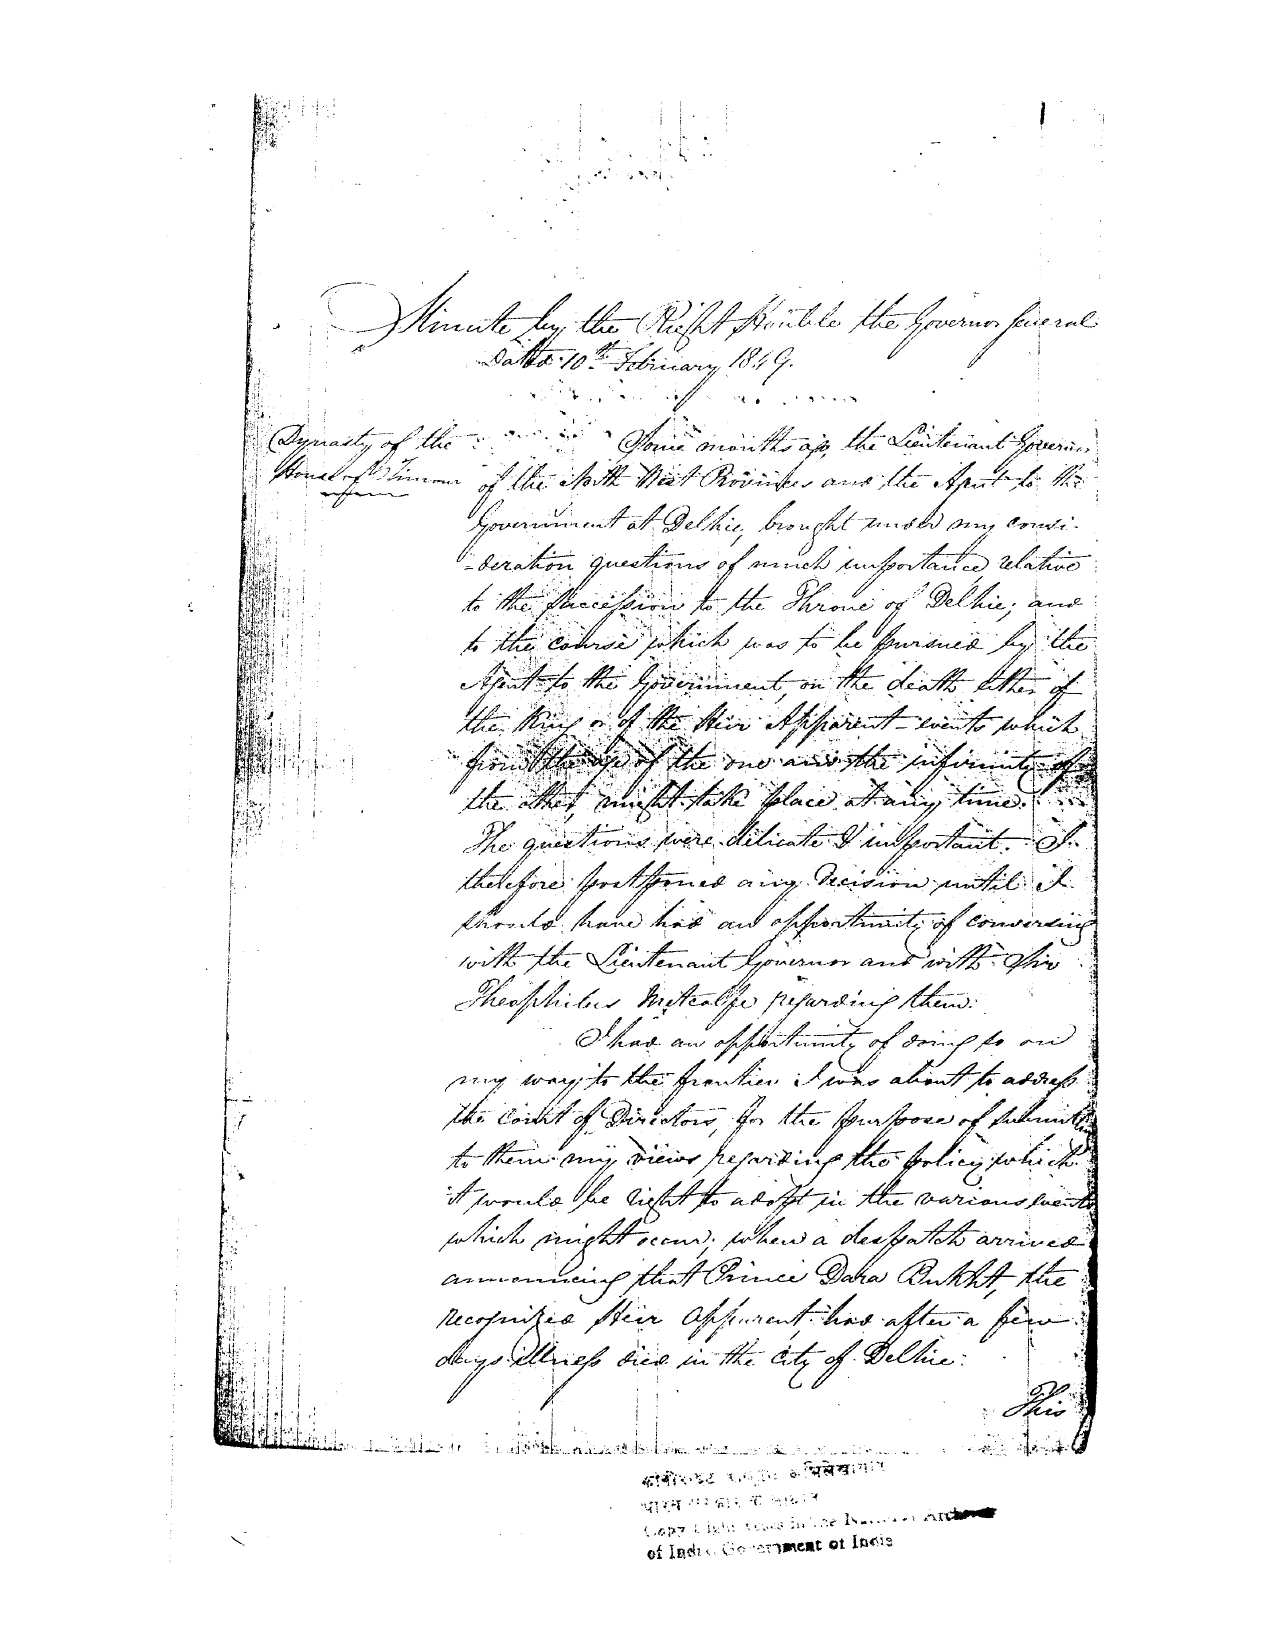 Minute by the Right Honble the Governor General
Dated 10th February 1849.
Dynasty of the
House of Timour
Some months ago, the Lieutenant Governor
of the North West Provinces and the Agent to the
Government at Delhie, brought under my consi-
-deration questions of much importance relative
to the succession to the Throne of Delhie; and
to the course which was to be pursued by the
Agent to the Government, on the death either of
the King or of the Heir Apparent - events which
from the age of the one and the infirmity of
the other, might take place at any time.
The questions were delicate & important. I
therefore postponed any decision until I
should have had an opportunity of conversing
with the Lieutenant Governor and with Sir
Theophilus Metcalfe regarding them.
I had an opportunity of doing so on
my way to the frontier. I was about to address
the Court of Directors, for the purpose of submitting
to them my views regarding the policy which
it would be right to adopt in the various events
which might occur, when a despatch arrived
announcing that Prince Dara Bukht, the
recognized Heir Apparent, had after a few
days illness died in the City of Delhie.
This
अभिलेखागार
भारत
Copy Right in the Archives
of India Government of India